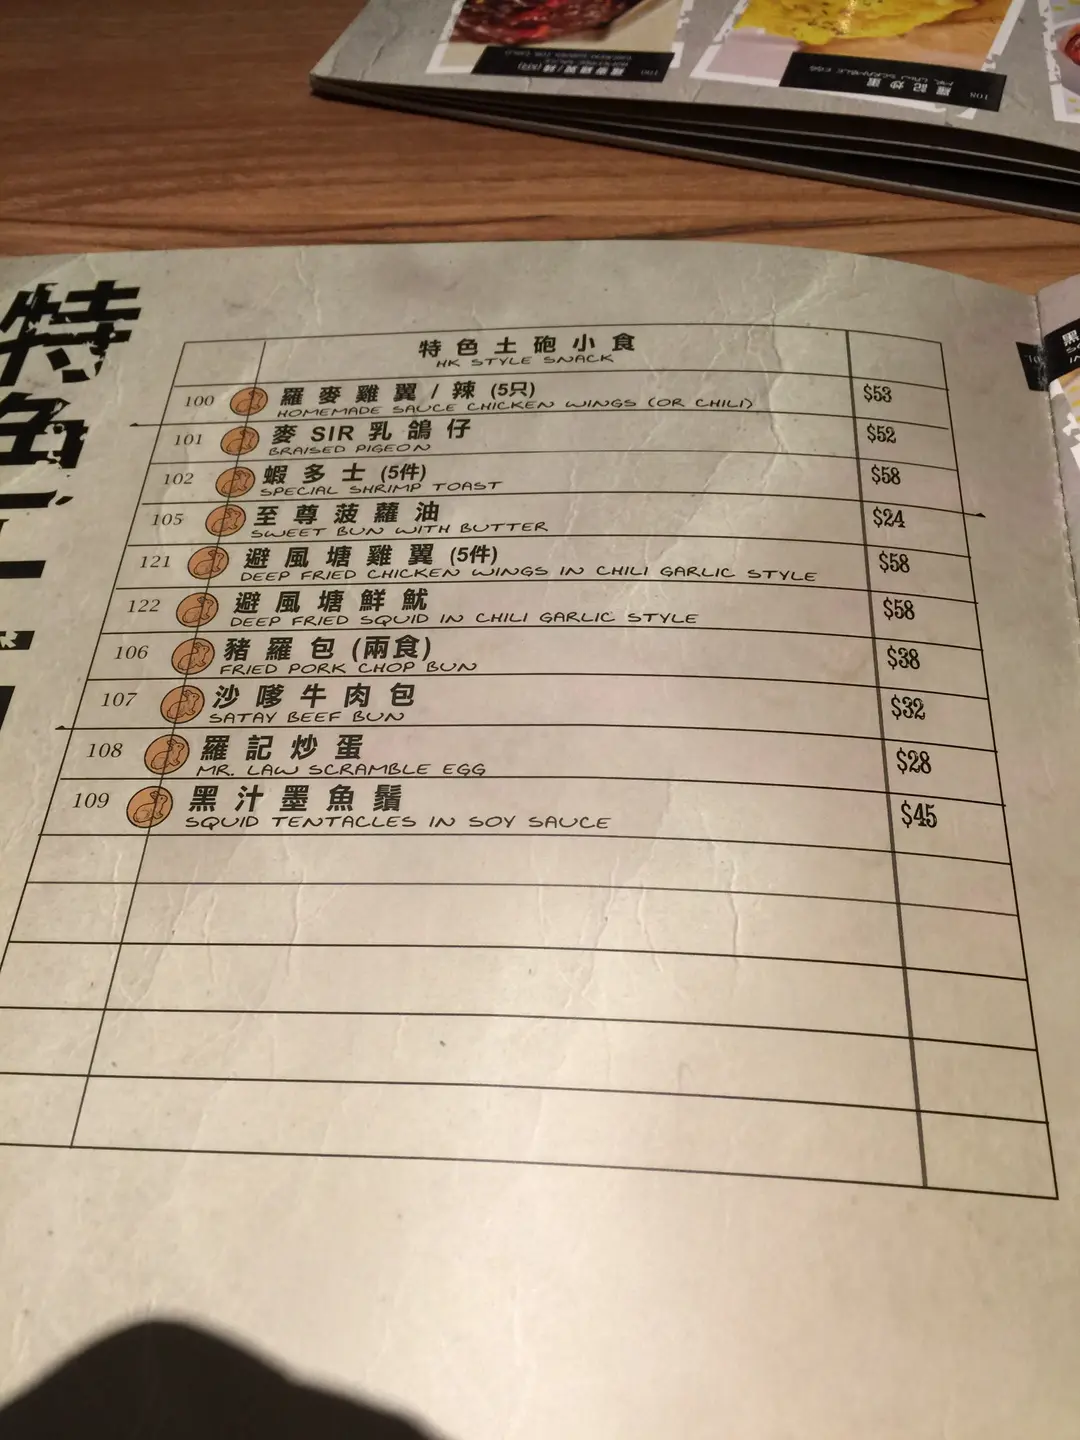 特色土砲小食
HK STYLE SNACK
100 羅麥雞翼/辣 (5只) $53
HOMEMADE SAUCE CHICKEN WINGS (OR CHILI)
101 麥SIR乳鴿仔 $52
BRAISED PIGEON
102 蝦多士 (5件) $58
SPECIAL SHRIMP TOAST
105 至尊菠蘿油 $24
SWEET BUN WITH BUTTER
121 避風塘雞翼 (5件) $58
DEEP FRIED CHICKEN WINGS IN CHILI GARLIC STYLE
122 避風塘鮮魷 $58
DEEP FRIED SQUID IN CHILI GARLIC STYLE
106 豬羅包 (兩食) $38
FRIED PORK CHOP BUN
107 沙嗲牛肉包 $32
SATAY BEEF BUN
108 羅記炒蛋 $28
MR. LAW SCRAMBLE EGG
109 黑汁墨魚鬚 $45
SQUID TENTACLES IN SOY SAUCE
特色
108 羅記炒蛋
MR. LAW SCRAMBLE EGG
100 羅麥雞翼/辣 (5只)